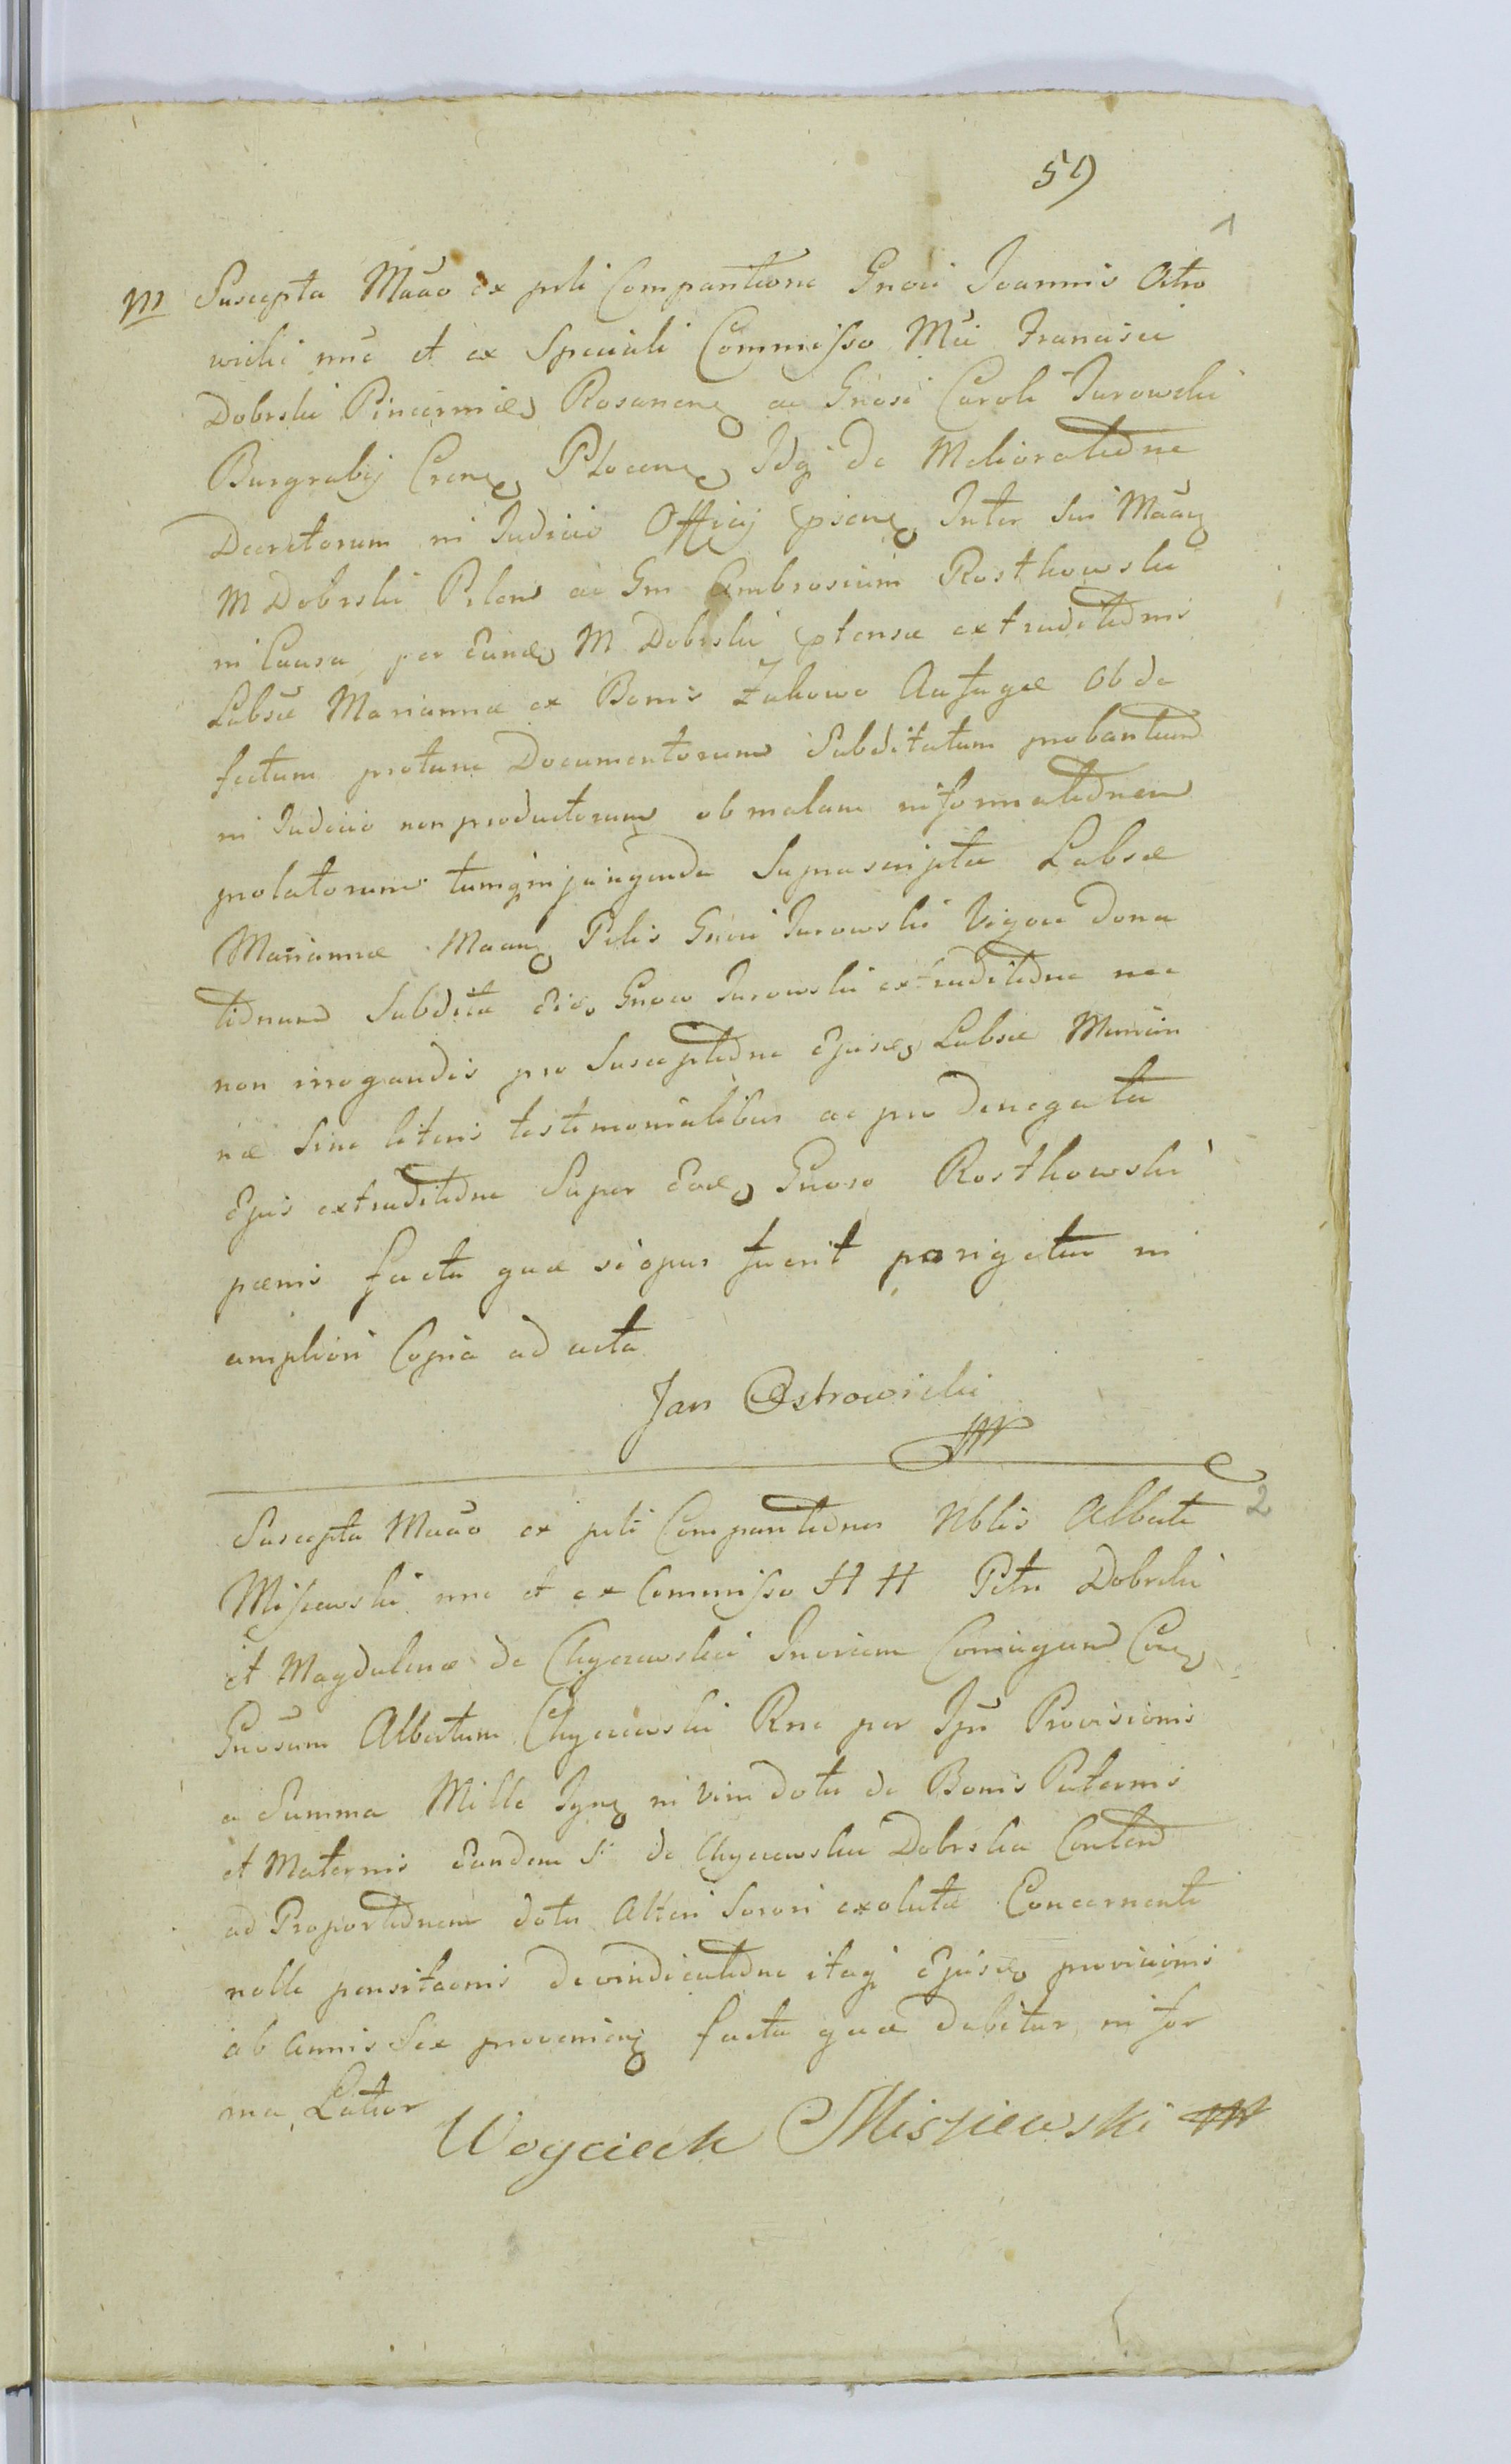 59
1
M Suscepta Maão ex psli Comparitione Gnosi Joannis Ostro
wicki nnc et ex Speciali Commisso Mci Francisci
Dobrski Pincernæ Rosanen ac Gnosi Caroli Jurowski
Burgrabij Cren Plocen Idq de Melioratione
Decretorum in Judicio Officij psen Inter sui Maan
M Dobrski Pslem ac Gm Ambrosium Rostkowski
in Causa per eund M Dobrski ptensæ extraditionis
Labsæ Mariannæ ex Bonis Żukowo Aufugæ Ob de
fectum protunc Documentorum Subditatum probantium
in Judicio non productorum ob malam informationem
prolatorum tumq injungenda Suprascriptæ Labsæ
Mariannæ Maan Pslis Gnosi Jurowski Vigore Dona
tionum Subditæ Eid Gnoso Jurowski extraditione nec
non irrogandis pro Susceptione Ejusd Labsæ Marian
næ Sine literis testimonialibus ac pro denegata
Ejus extraditione Super Eod Gnoso Rostkowski
pænis facta quæ si opus fuerit porrigetur in
ampliori Copia ad acta
Jan Ostrowicki
2
Suscepta Maão ex psli Comparitione Nblis Alberti
Misiewski nnc et ex Commisso H H Petri Dobrski
et Magdalenæ de Chyczewskie Inviem Conjugum Con
Gnosum Albertum Chyczewski Rne per Ipm Provisionis
a Summa Mille Tyn in vim dotis de Bonis Paternis
et Maternis Eandem S de Chyczewskie Dobrska Conten
ad Proportionem dotis Alteri Sorori exolutæ Concernente
nolle pensitaonis devindicatione itaq Ejusd provisionis
ab Annis Sex provenien facta quæ dabitur in for
ma Latior
Woyciech Misziewski